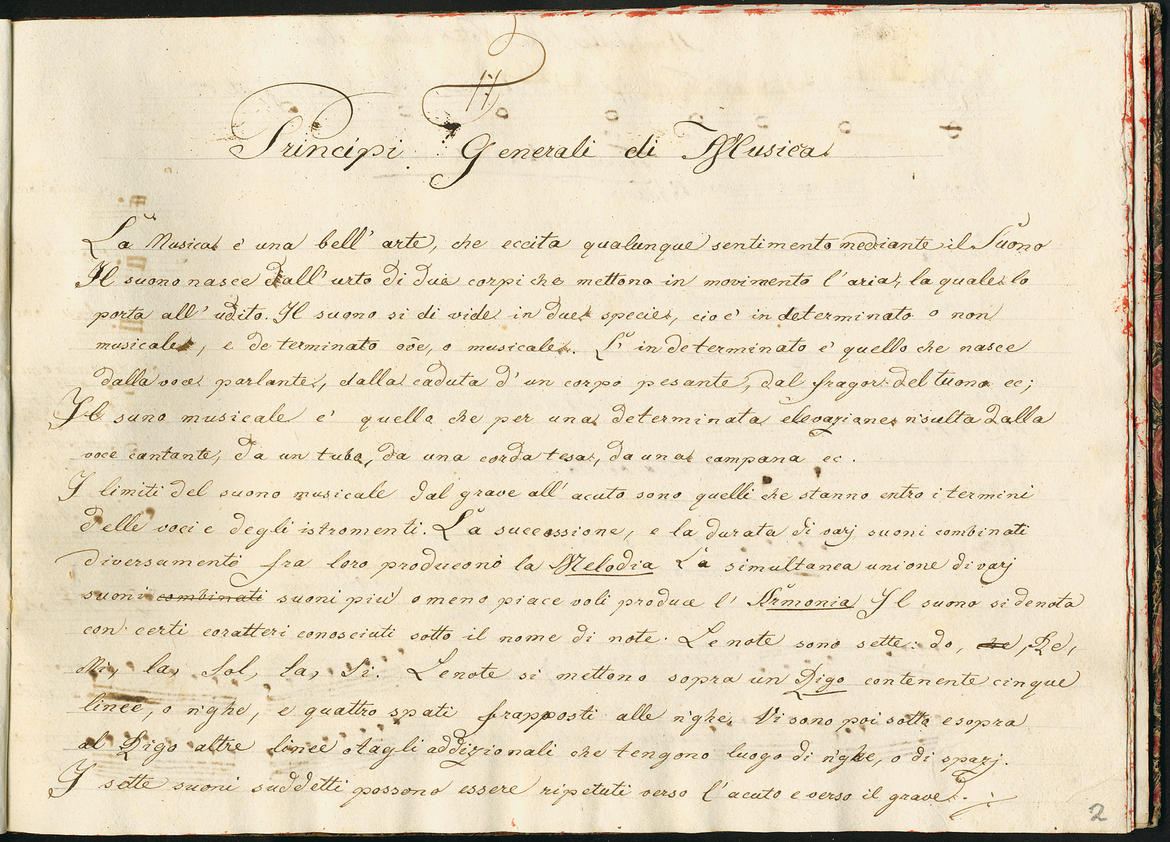 Principi Generali di Musica
La Musica è una bell' arte, che eccita qualunque sentimento mediante il Suono
Il suono nasce dall' urto di due corpi che mettono in movimento l' aria, la quale lo
porta all' udito. Il suono si di vide in due specie, cio è in determinato o non
musicale, e de terminato o musicale. L' in determinato è quello che nasce
dalla voce parlante, dalla caduta d' un corpo pesante, dal fragor del tuono ec;
Il suno musicale è quello che per una determinata elevazione risulta dalla
voce cantante, da un tubo, da una corda tesa, da una campana ec.
I limiti del suono musicale dal grave all' acuto sono quelli che stanno entro i termini
delle voci e degli istromenti. La successione, e la durata di varj suoni combinati
diversamente fra loro producono la Melodia La simultanea unione di varj
suoni combinati suoni più o meno piace voli produce l' Armonia Il suono si denota
con certi caratteri conosciuti sotto il nome di note. Le note sono sette: do, re, Re,
Mi, fa, Sol, la, Si. Le note si mettono sopra un Rigo contenente cinque
linee, o righe, e quattro spati frapposti alle righe. Vi sono poi sotto e sopra
al Rigo altre linee o tagli addizionali che tengono luogo di righe, o di spazj.
I sette suoni suddetti possono essere ripetuti verso l' acuto e verso il grave.
2